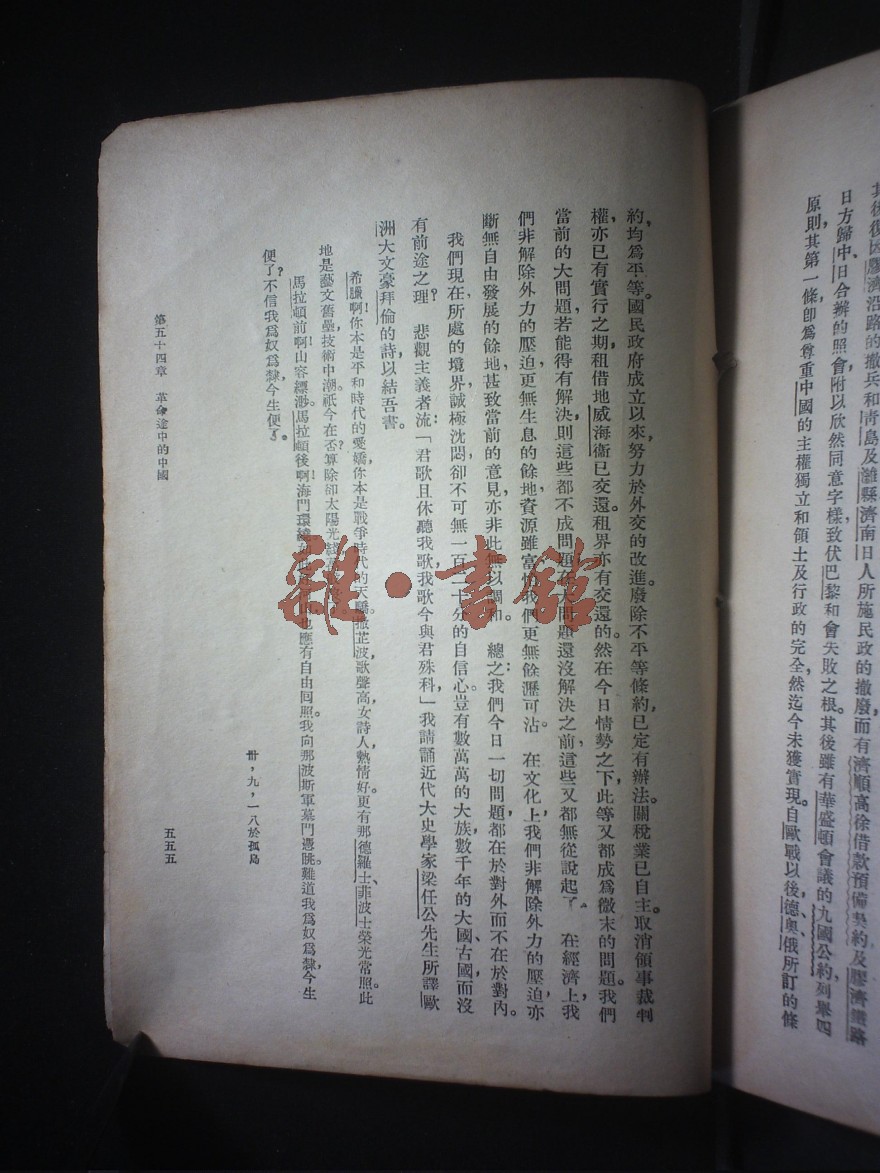 其後復因膠濟沿路的撤兵和青島及濰縣濟南日人所施民政的撤廢而有濟順高徐借款預備契約及膠濟鐵路
日方歸中、日合辦的照會，附以欣然同意字樣，致伏巴黎和會失敗之根。其後雖有華盛頓會議的九國公約，列舉四
原則，其第一條，卽爲尊重中國的主權獨立和領土及行政的完全，然迄今未獲實現。自歐戰以後，德、奧、俄所訂的條
約，均爲平等。國民政府成立以來，努力於外交的改進。廢除不平等條約，已定有辦法。關稅業已自主。取消領事裁判
權，亦已有實行之期。租借地威海衞已交還。租界亦有交還的。然在今日情勢之下，此等又都成爲微末的問題。我們
當前的大問題，若能得有解決，則這些都不成問題；在大問題還沒解決之前，這些又都無從說起了。在經濟上，我
們非解除外力的壓迫，更無生息的餘地，資源雖富，怕我們更無餘瀝可沾。在文化上，我們非解除外力的壓迫，亦
斷無自由發展的餘地，甚致當前的意見，亦非此無以調和。總之：我們今日一切問題，都在於對外而不在於對內。
我們現在所處的境界，誠極沈悶，卻不可無一百二十分的自信心。豈有數萬萬的大族，數千年的大國、古國，而沒
有前途之理？悲觀主義者流：「君歌且休聽我歌，我歌今與君殊科」我請誦近代大史學家梁任公先生所譯歐
洲大文豪拜倫的詩，以結吾書。
希臘啊！你本是平和時代的愛嬌，你本是戰爭時代的天驕。撒芷波歌聲高，女詩人熱情好。更有那德羅士、菲波士榮光常照。此
地是藝文舊壘，技術中潮。祇今在否？算除卻太陽光線，
馬拉頓前啊！山容縹渺。馬拉頓後啊！海門環繞。也應有自由回照。我向那波斯軍墓門憑眺。難道我爲奴爲隸，今生
便了？不信我爲奴爲隸，今生便了。
卅，九，一八於孤島
第五十四章　革命途中的中國
五五五
雜·書館